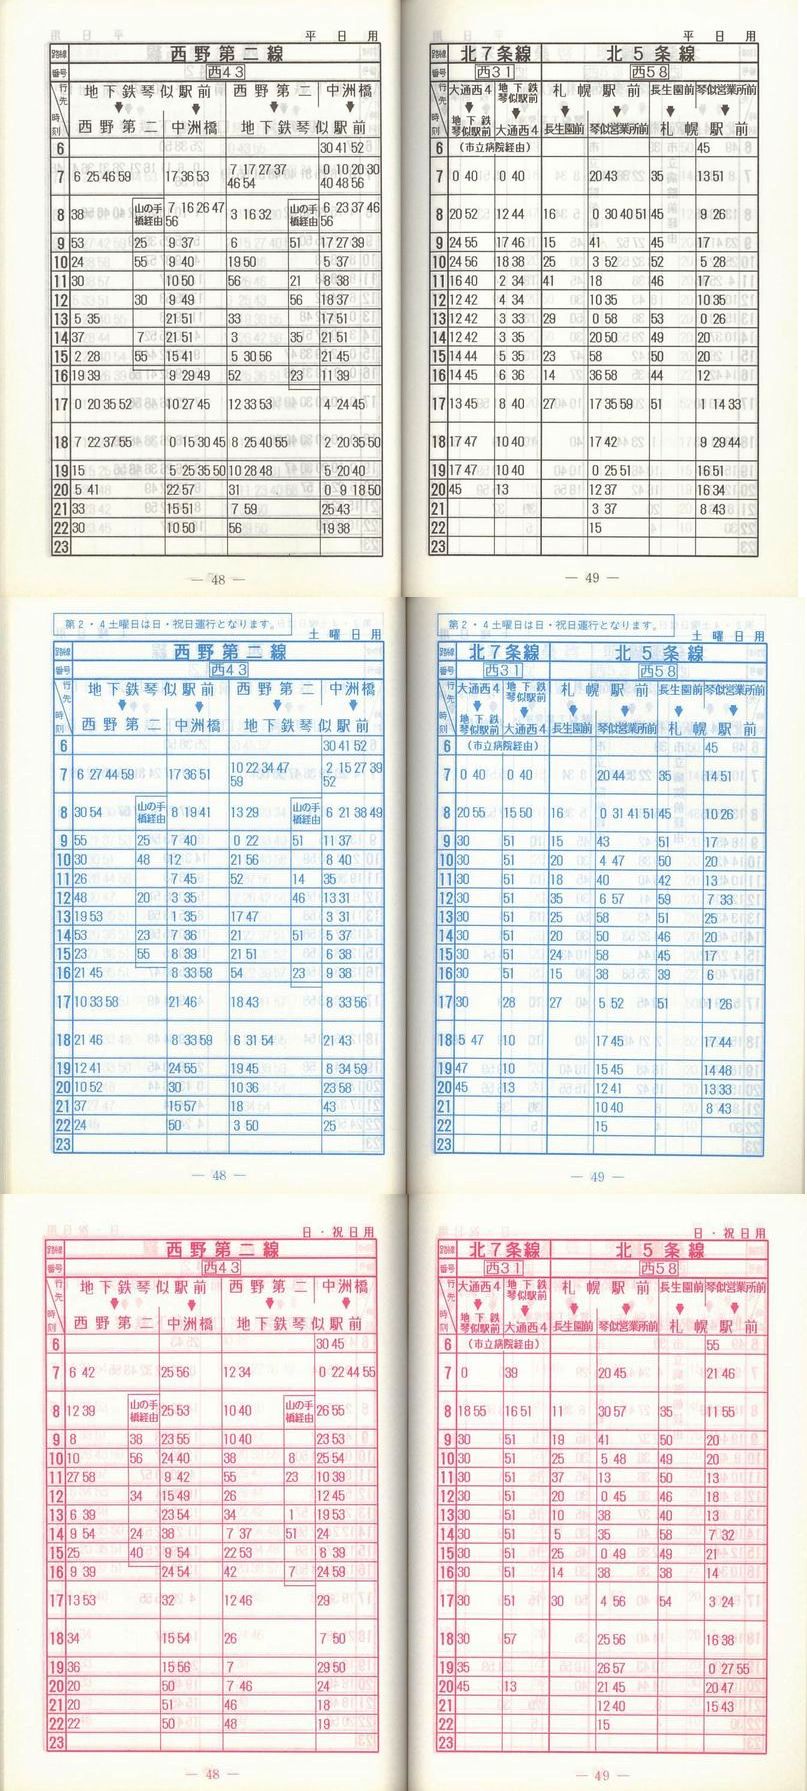 平日用
路線 西野第二線
番号 西43
行先 地下鉄琴似駅前 西野第二 中洲橋
時刻 西野第二 中洲橋 地下鉄琴似駅前
6 30 41 52
7 6 25 46 59 17 36 53 7 17 27 37 46 54 0 10 20 30 40 48 56
8 38 山の手橋経由 7 16 26 47 56 3 16 32 山の手橋経由 6 23 37 46 56
9 53 25 9 37 6 51 17 27 39
10 24 55 9 40 19 50 5 37
11 30 10 50 56 21 8 38
12 30 9 49 56 18 37
13 5 35 21 51 33 17 51
14 37 7 21 51 3 35 21 51
15 2 28 55 15 41 5 30 56 21 45
16 19 39 9 29 49 52 23 11 39
17 0 20 35 52 10 27 45 12 33 53 4 24 45
18 7 22 37 55 0 15 30 45 8 25 40 55 2 20 35 50
19 15 5 25 35 50 10 28 48 5 20 40
20 5 41 22 57 31 0 9 18 50
21 33 15 51 7 59 25 43
22 30 10 50 56 19 38
23
— 48 —
平日用
路線 北7条線 北5条線
番号 西31 西58
行先 大通西4 地下鉄琴似駅前 札幌駅前 長生園前 琴似営業所前
時刻 地下鉄琴似駅前 大通西4 長生園前 琴似営業所前 札幌駅前
6 (市立病院経由) 45
7 0 40 0 40 20 43 35 13 51
8 20 52 12 44 16 0 30 40 51 45 9 26
9 24 55 17 46 15 41 45 17
10 24 56 18 38 25 3 52 52 5 28
11 16 40 2 34 41 18 46 17
12 12 42 4 34 10 35 10 35
13 12 42 3 33 29 0 58 53 0 26
14 12 42 3 35 20 50 49 20
15 14 44 5 35 23 58 50 20
16 14 45 6 36 14 36 58 44 12
17 13 45 8 40 27 17 35 59 51 1 14 33
18 17 47 10 40 17 42 9 29 44
19 17 47 10 40 0 25 51 16 51
20 45 13 12 37 16 34
21 3 37 8 43
22 15
23
— 49 —
第2・4土曜日は日・祝日運行となります。
土曜日用
路線 西野第二線
番号 西43
行先 地下鉄琴似駅前 西野第二 中洲橋
時刻 西野第二 中洲橋 地下鉄琴似駅前
6 30 41 52
7 6 27 44 59 17 36 51 10 22 34 47 59 2 15 27 39 52
8 30 54 山の手橋経由 8 19 41 13 29 山の手橋経由 6 21 38 49
9 55 25 7 40 0 22 51 11 37
10 30 48 12 21 56 8 40
11 26 7 45 52 14 35
12 48 20 3 35 46 13 31
13 19 53 1 35 17 47 3 31
14 53 23 7 36 21 51 5 37
15 23 55 8 39 21 51 6 38
16 21 45 8 33 58 54 23 9 38
17 10 33 58 21 46 18 43 8 33 56
18 21 46 8 33 59 6 31 54 21 43
19 12 41 24 55 19 45 8 34 59
20 10 52 30 10 36 23 58
21 37 15 57 18 43
22 24 50 3 50 25
23
— 48 —
第2・4土曜日は日・祝日運行となります。
土曜日用
路線 北7条線 北5条線
番号 西31 西58
行先 大通西4 地下鉄琴似駅前 札幌駅前 長生園前 琴似営業所前
時刻 地下鉄琴似駅前 大通西4 長生園前 琴似営業所前 札幌駅前
6 (市立病院経由) 45
7 0 40 0 40 20 44 35 14 51
8 20 55 15 50 16 0 31 41 51 45 10 26
9 30 51 15 43 51 17
10 30 51 20 4 47 50 20
11 30 51 18 40 42 13
12 30 51 35 6 57 59 7 33
13 30 51 25 58 51 25
14 30 51 20 50 46 20
15 30 51 24 58 45 17
16 30 51 15 38 39 6
17 30 28 27 5 52 51 1 26
18 5 47 10 17 45 17 44
19 47 10 15 45 14 48
20 45 13 12 41 13 33
21 10 40 8 43
22 15
23
— 49 —
日・祝日用
路線 西野第二線
番号 西43
行先 地下鉄琴似駅前 西野第二 中洲橋
時刻 西野第二 中洲橋 地下鉄琴似駅前
6 30 45
7 6 42 25 56 12 34 0 22 44 55
8 12 39 山の手橋経由 25 53 10 40 山の手橋経由 26 55
9 8 38 23 55 10 40 23 53
10 10 56 24 40 38 8 25 54
11 27 58 9 42 55 23 10 39
12 34 15 49 26 12 45
13 6 39 23 54 34 1 19 53
14 9 54 24 38 7 37 51 24
15 25 40 9 54 22 53 8 39
16 9 39 24 54 42 7 24 59
17 13 53 32 12 46 29
18 34 15 54 26 7 50
19 36 15 56 7 29 50
20 20 50 7 46 24
21 20 51 46 18
22 22 50 48 19
23
— 48 —
日・祝日用
路線 北7条線 北5条線
番号 西31 西58
行先 大通西4 地下鉄琴似駅前 札幌駅前 長生園前 琴似営業所前
時刻 地下鉄琴似駅前 大通西4 長生園前 琴似営業所前 札幌駅前
6 (市立病院経由) 55
7 0 39 20 45 21 46
8 18 55 16 51 11 30 57 35 11 55
9 30 51 19 41 50 20
10 30 51 25 5 48 49 20
11 30 51 37 13 50 13
12 30 51 20 0 45 46 18
13 30 51 10 38 40 13
14 30 51 5 35 58 7 32
15 30 51 25 0 49 49 21
16 30 51 14 38 38 14
17 30 51 30 4 56 54 3 24
18 30 57 25 56 16 38
19 35 26 57 0 27 55
20 45 13 21 45 20 47
21 12 40 15 43
22 15
23
— 49 —